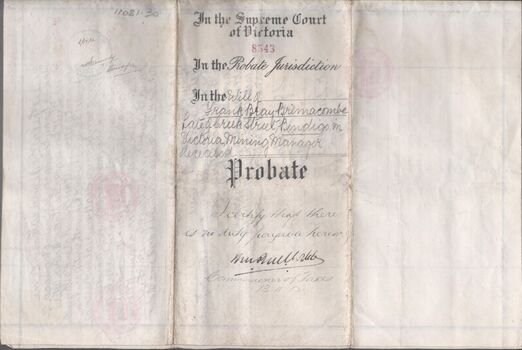 11081.30
In the Supreme Court
of Victoria
8543
In the Probate Jurisdiction
In the Will of
Frank Bray Brimacombe
Late of Creek Street, Bendigo in
Victoria Mining Manager
deceased
Probate
I certify that there
is no duty payable hereon
Commissioner of Taxes